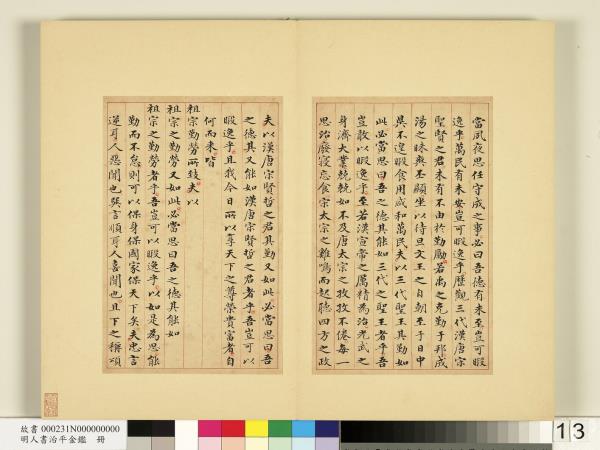 當夙夜思任守成之事必曰吾德有未至豈可暇
逸乎萬民有未安豈可暇逸乎歷觀三代漢唐宗
聖賢之君未有不由於勤勵若禹之克勤于邦成
湯之昧爽丕顯坐以待旦文王之自朝至于日中
昃不遑暇食用咸和萬民夫以三代聖王其勤如
此必當思曰吾之德其能如三代之聖王者乎吾
豈敢以暇逸乎至若漢宣帝之厲精為治光武之
身濟大業兢兢如不及唐太宗之孜孜不倦每一
思治廢寢忘食宋太宗之雞鳴而起聽四方之政
夫以漢唐宗賢哲之君其勤又如此必當思曰吾
之德其又能如漢唐宗賢哲之君者乎吾豈可以
暇逸乎且我今日所以享天下之尊榮貴富者自
何而來皆
祖宗勤勞所致夫以
祖宗之勤勞又如此必當思曰吾之德其能如
祖宗之勤勞者乎吾豈可以暇逸乎以如是為思能
勤而不怠則可以保身保國家保天下矣夫忠言
逆耳人惡聞也巽言順耳人喜聞也且下之稱頌
故書 000231N000000000
明人書治平金鑑 冊
13